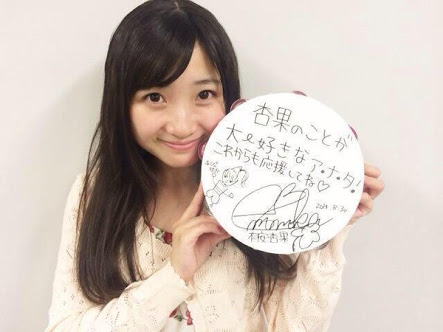 杏果のことが
大々好きなア・ナ・タ!
これからも応援してね♡
有安杏果